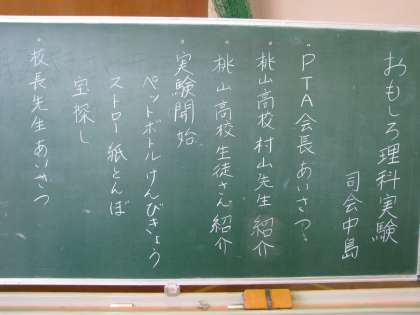 おもしろ理科実験
司会中島
・PTA会長あいさつ
・桃山高校 村山先生 紹介
・桃山高校生徒さん紹介
・実験開始
ペットボトルけんびきょう
ストロー紙とんぼ
宝探し
・校長先生あいさつ